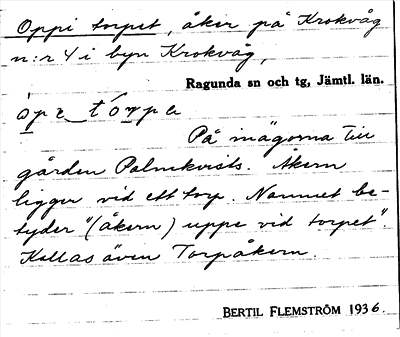 Oppi torpet, åker på Krokvåg
n:r 4 i byn Krokvåg,
Ragunda sn och tg, Jämtl. län.
På inägorna till
gården Palmkvists. Åkern
ligger vid ett torp. Namnet be-
tyder "(åkern) uppe vid torpet".
Kallas även Torpåkern.
BERTIL FLEMSTRÖM 1936.